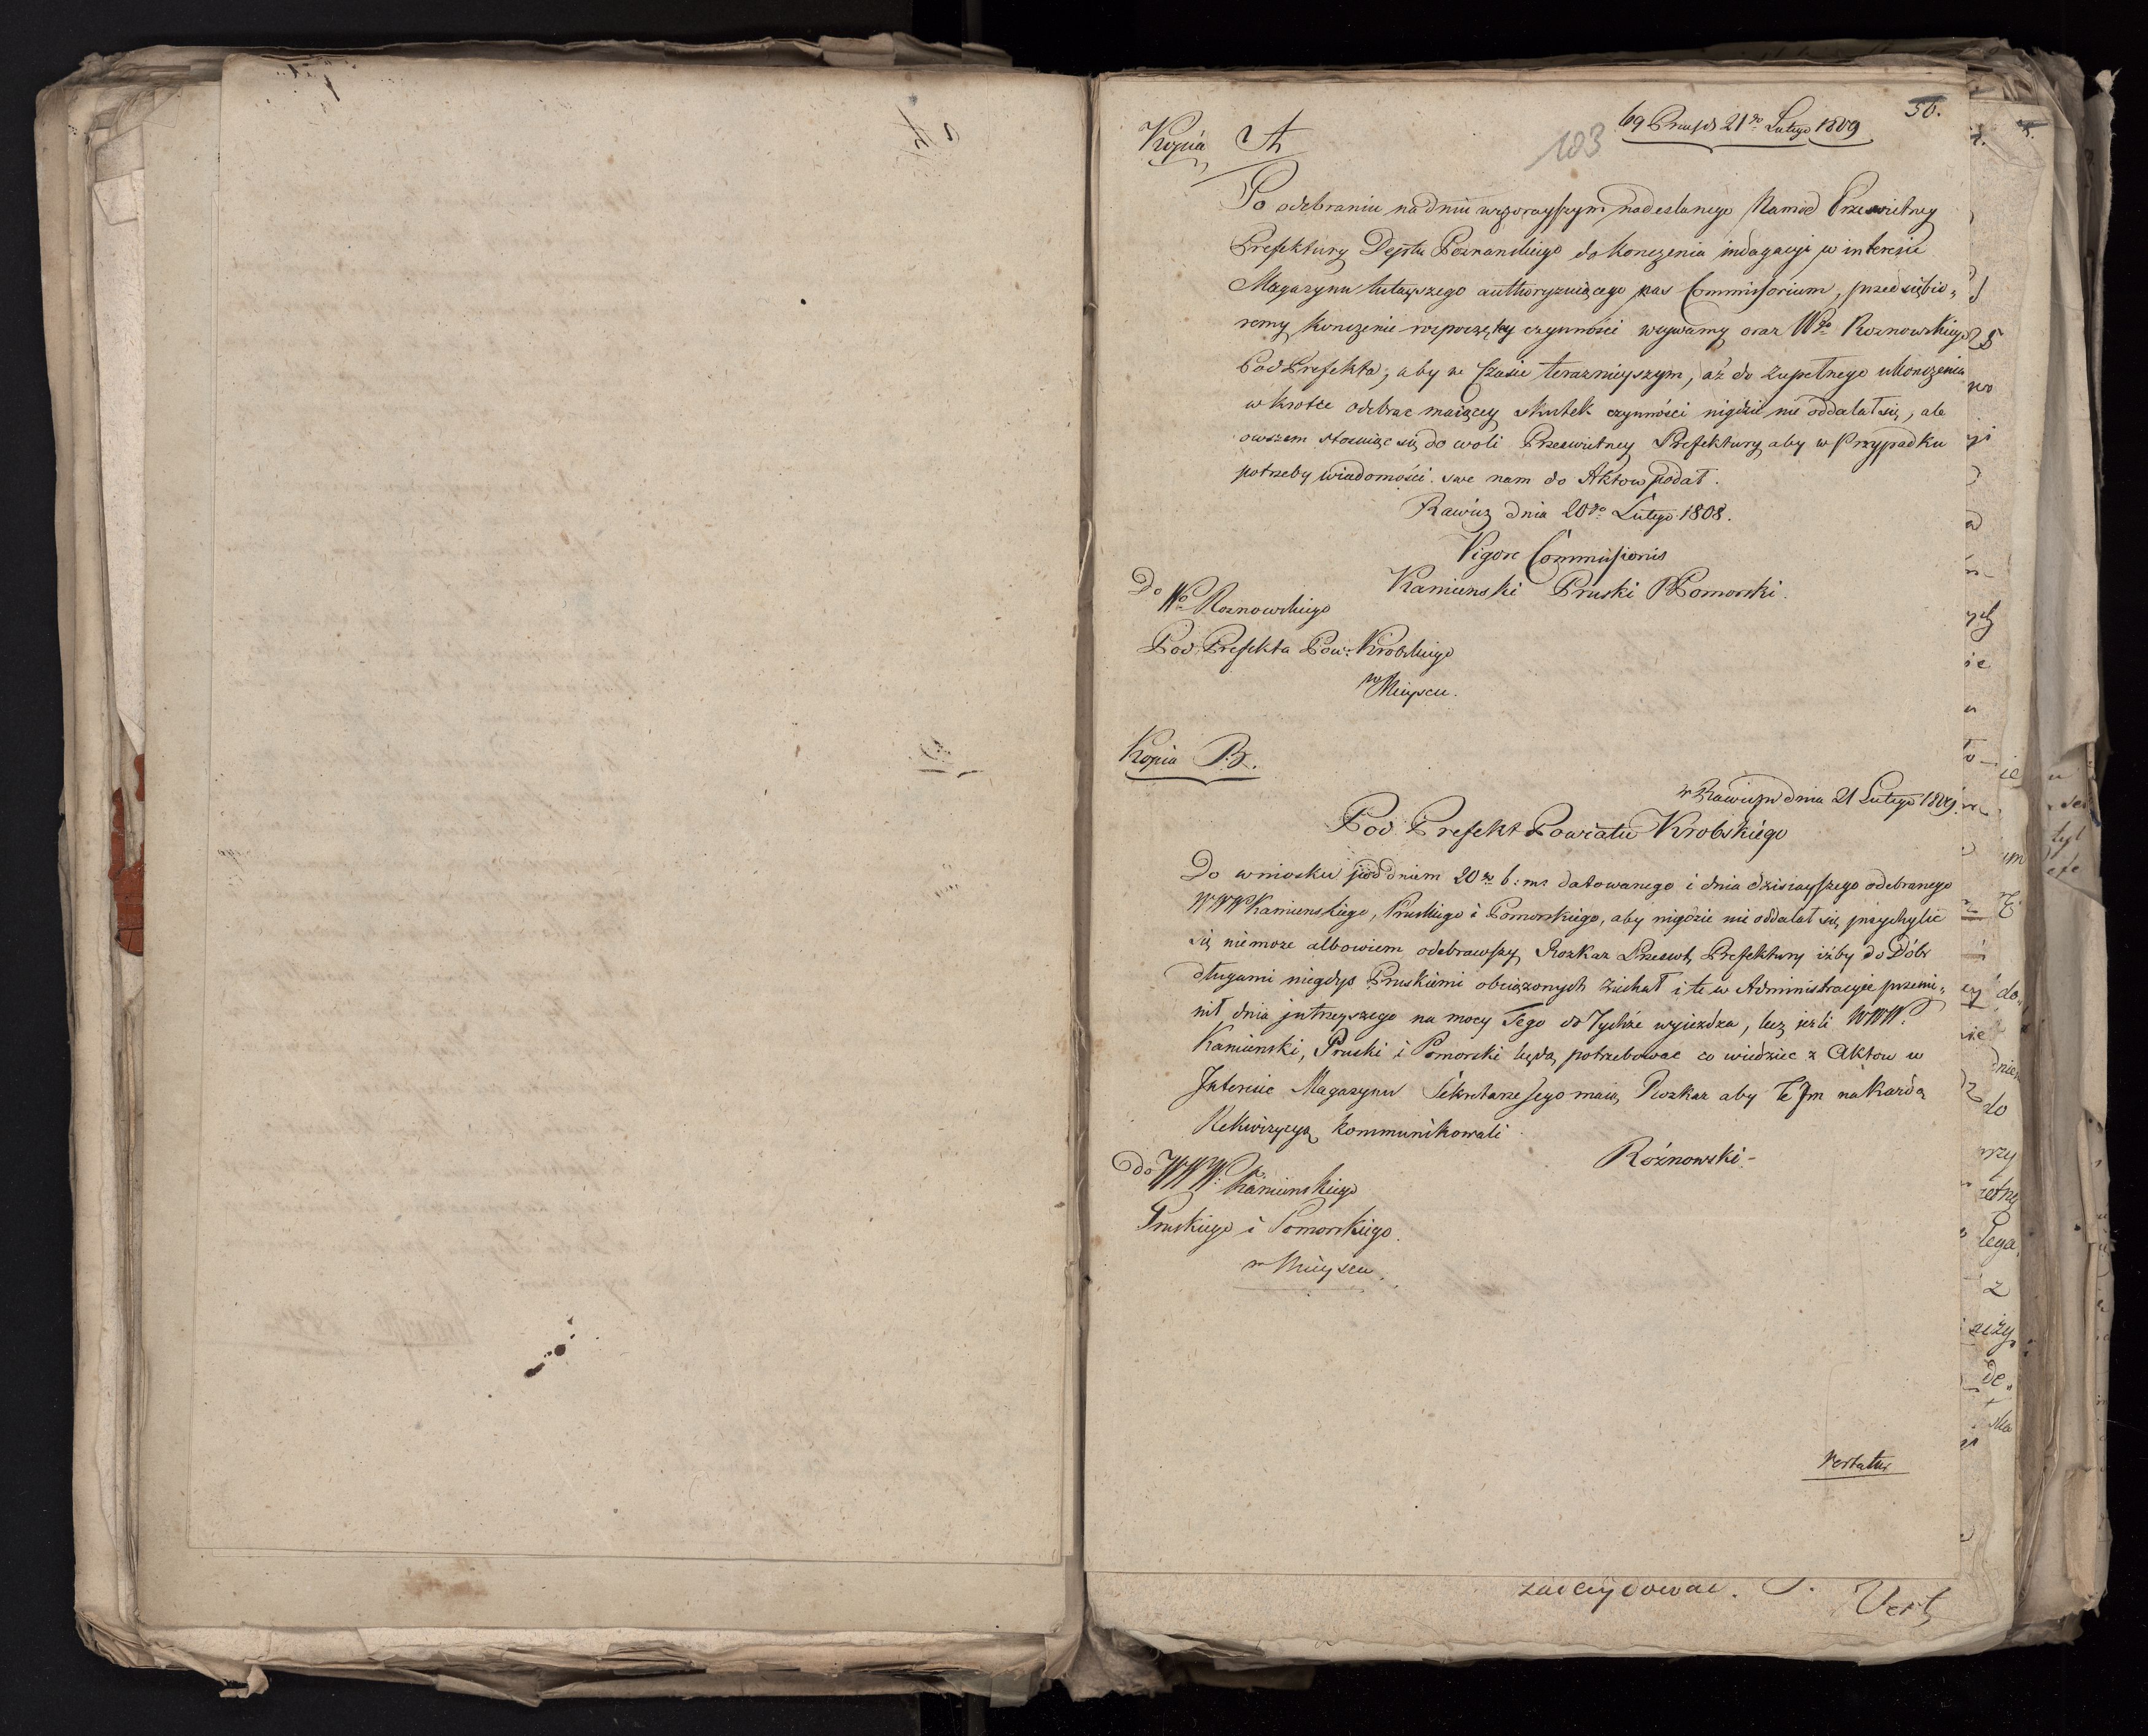 Kopia A
103
69 Praes 21go Lutego 1809
50.
Po odebraniu na dniu wczorayszym nadesłanego Nam od Prześwietney
Prefektury Deptu Poznanskiego do konczenia indagacyi w interesie
Magazynu tuteyszego authoryzuiącego nas Commissorium, przedsiębio„
remy konczenie rozpoczętey czynności wzywamy oraz Wgo Roznowskiego
PodPrefekta, aby w Czasie teraznieyszym, aż do zupełnego ukonczenia
w krotce odebrac maiącey skutek czynności nigdzie nie oddalał się, ale
owszem stosuiąc się do woli Prześwietney Prefektury aby w Przypadku
potrzeby wiadomości swe nam do Aktow podał.
Rawicz dnia 20go Lutego 1808.
Vigore Commissionis
Kamienski Pruski Pomorski.
Do Wo Roznowskiego
Pod Prefekta Pow: Krobskiego
w Mieyscu.
Kopia B.
w Rawiczu dnia 21 Lutego 1809.
Pod Prefekt Powiatu Krobskiego
Do wniosku pod dniem 20go b: m: datowanego i dnia dzisiayszego odebranego
WWW Kamienskiego, Pruskiego i Pomorskiego, aby nigdzie nie oddalał się, przychylic
się niemoze albowiem odebrawszy Rozkaz Przeswt Prefektury iżby do Dóbr
długami niegdys Pruskiemi obciązonych Ziechał i te w Administracyie przemie„
nił dnia jutrzeyszego na mocy Tego do Tychże wyiezdza, lecz jezli WWW.
Kamienski, Pruski i Pomorski będą potrzebowac co wiedziec z Aktow w
Interesie Magazynu Sekretarze jego maią Rozkaz aby te Jm na kazdą
Rekwizycyą kommunikowali
Roźnowski
do WWW: Kamienskiego
Pruskiego i Pomorskiego.
w Mieyscu.
Vertatur
Vert